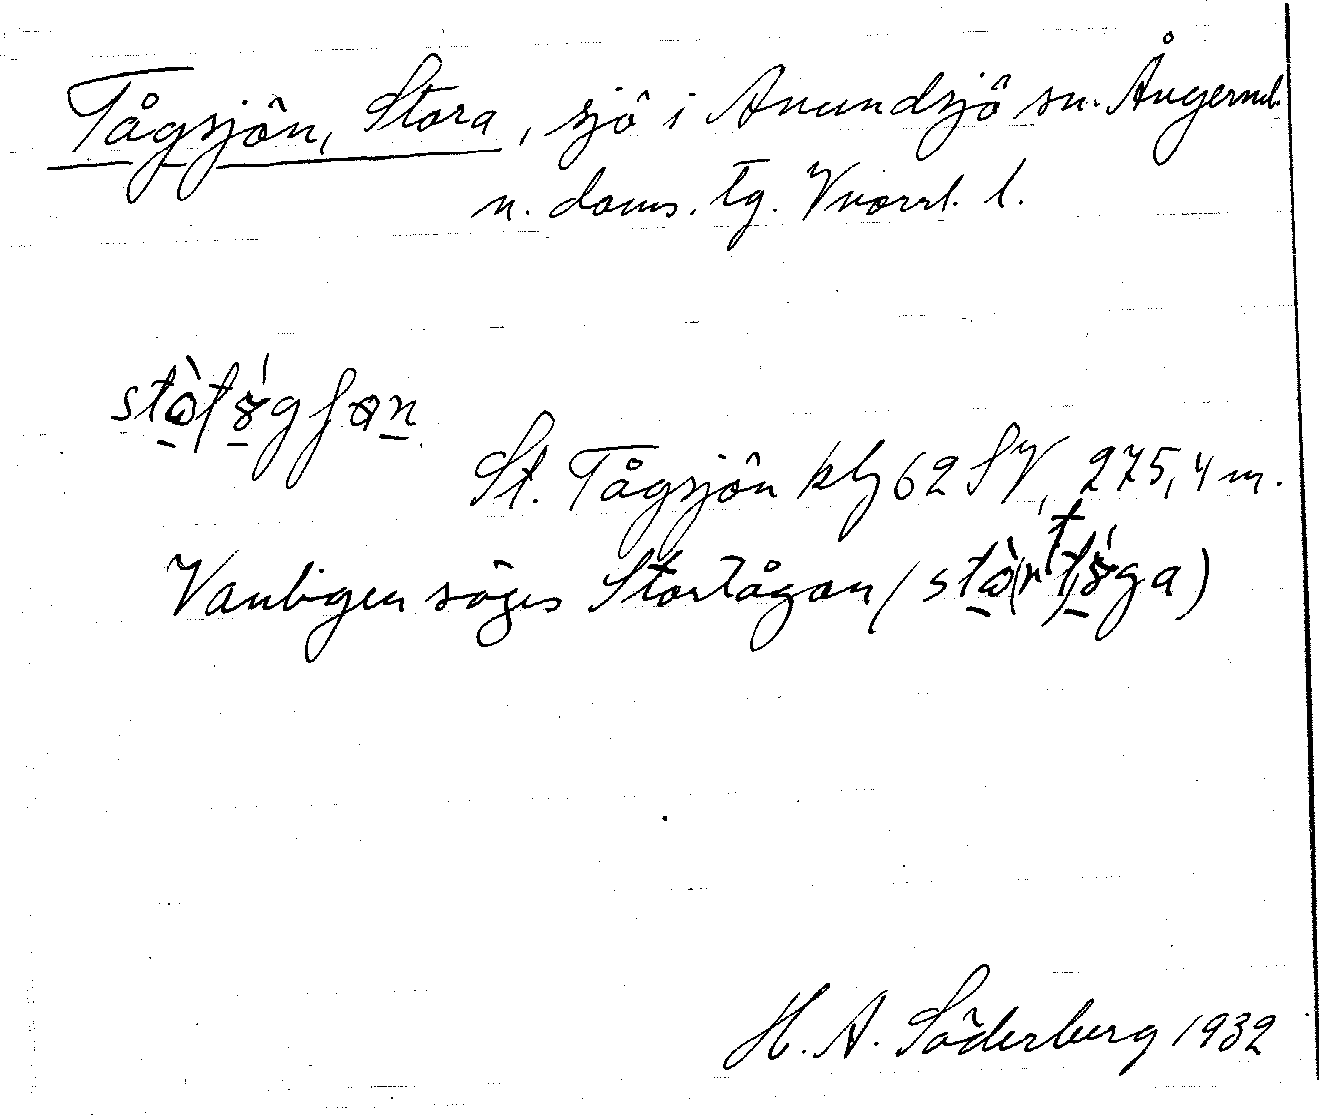 Tågsjön, Stora, sjö i Anundsjö sn. Ångerml.
n. doms. tg. Vnorrl. l.
St. Tågsjön kbl 62 SV, 275,4 m.
Vanligen säges Stortågan
H. A. Söderberg 1932